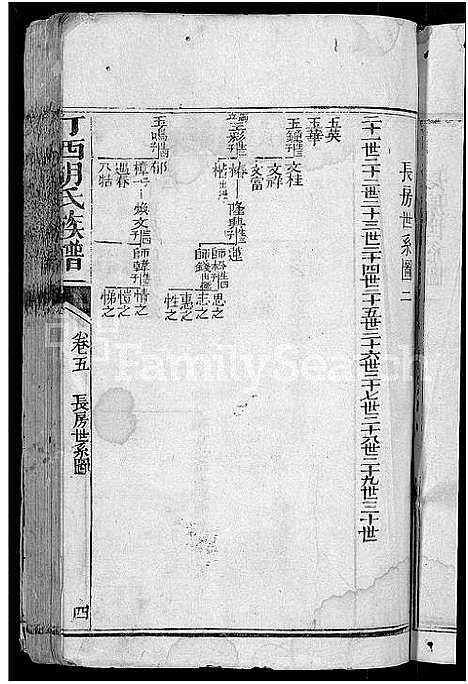 長房世系圖二
二十一世二十二世二十三世二十四世二十五世二十六世二十七世二十八世二十九世三十世
玉英
玉華
玉鐘
文桂
文梓
文富
玉彩
楷
隆典
蓮
師
思之
志之
師錢
惠之
性之
玉鳴
郁
樟
煥文
師韓
情之
愷之
悌之
巡春
八牯
西胡氏族譜
卷五
長房世系圖
四
FamilySearch